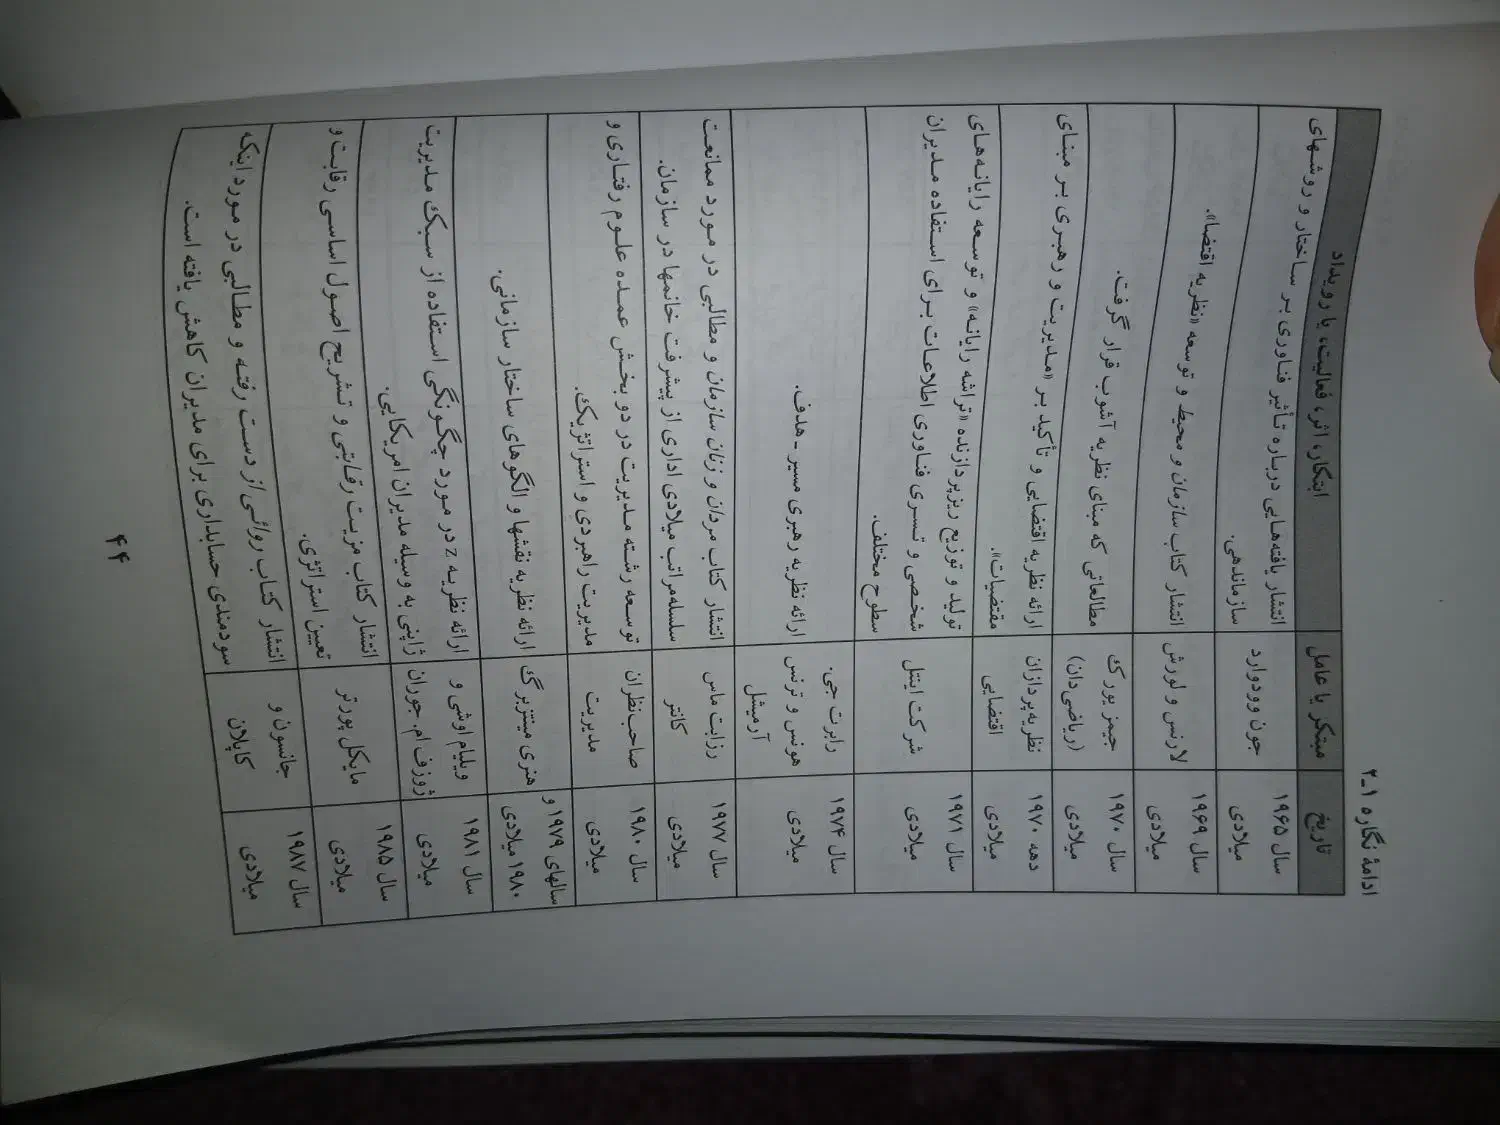 ادامهٔ نگاره ۱ـ۲
تاریخ
مبتکر یا عامل
ابتکار، اثر، فعالیت، یا رویداد
سال ۱۹۶۵
میلادی
جون وودوارد
انتشار یافته‌هایی درباره تأثیر فناوری بر ساختار و روشهای
سازماندهی.
سال ۱۹۶۹
میلادی
لارنس و لورش
انتشار کتاب سازمان و محیط و توسعه «نظریه اقتضا».
سال ۱۹۷۰
میلادی
جیمز یورک
(ریاضی‌دان)
مطالعاتی که مبنای نظریه آشوب قرار گرفت.
دهه ۱۹۷۰
میلادی
نظریه‌پردازان
اقتضایی
ارائه نظریه اقتضایی و تأکید بر «مدیریت و رهبری بر مبنای
مقتضیات».
سال ۱۹۷۱
میلادی
شرکت اینتل
تولید و توزیع ریزپردازنده «تراشه رایانه» و توسعه رایانه‌های
شخصی و تسری فناوری اطلاعات برای استفاده مدیران
سطوح مختلف.
سال ۱۹۷۴
میلادی
رابرت جی.
هونس و ترنس
آرمیشل
ارائه نظریه رهبری مسیر ـ هدف.
سال ۱۹۷۷
میلادی
رزابت ماس
کانتر
انتشار کتاب مردان و زنان سازمان و مطالبی در مورد ممانعت
سلسله‌مراتب میلادی اداری از پیشرفت خانمها در سازمان.
سال ۱۹۸۰
میلادی
صاحب‌نظران
مدیریت
توسعه رشته مدیریت در دو بخش عمده علوم رفتاری و
مدیریت راهبردی و استراتژیک.
سالهای ۱۹۷۹ و
۱۹۸۰ میلادی
هنری مینتزبرگ
ارائه نظریه نقشها و الگوهای ساختار سازمانی.
سال ۱۹۸۱
میلادی
ویلیام اوشی و
ژوزف ام. جوران
ارائه نظریه z در مورد چگونگی استفاده از سبک مدیریت
ژاپنی به وسیله مدیران امریکایی.
سال ۱۹۸۵
میلادی
مایکل پورتر
انتشار کتاب مزیت رقابتی و تشریح اصول اساسی رقابت و
تعیین استراتژی.
سال ۱۹۸۷
میلادی
جانسون و
کاپلان
انتشار کتاب روائی از دست رفته و مطالبی در مورد اینکه
سودمندی حسابداری برای مدیران کاهش یافته است.
۴۴